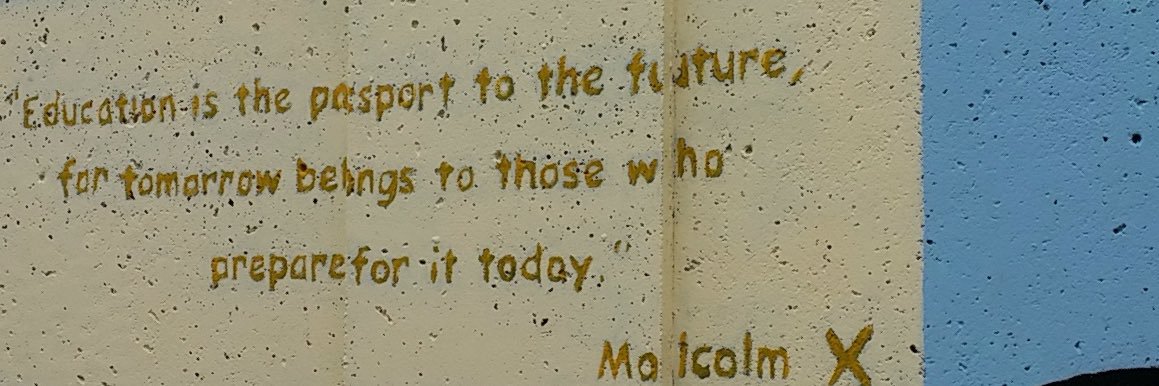 "Education is the pasport to the future,
for tomorrow belongs to those who
prepare for it today."
Malcolm X